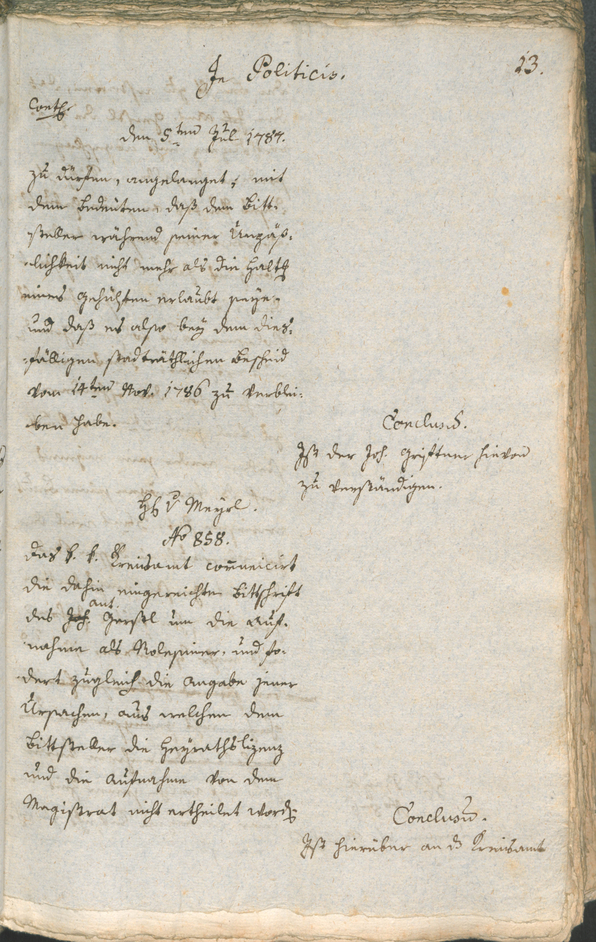 In Politicis.
13.
den 5ten Jul. 1787.
zu dürfen, angelanget, mit
dem Bedeuten, daß dem Bitt-
steller während seiner Unpäß-
lichkeit nicht mehr als die Halt
eines Gehülfen erlaubt seye,
und daß es also bey dem dies-
fälligen stadträthlichen Bescheid
vom 14ten Nov. 1786 zu verblei-
ben habe.
Conclusum.
Ist der Joh. hievon
zu verständigen.
H. v. Meyrl.
No 858.
Das k. k. Kreisamt comunicirt
die dahin eingereichte Bittschrift
ant.
des Gerstl um die Auf-
nahme als und fo-
dert zugleich die Angabe jener
Ursachen, aus welchen dem
Bittsteller die Heyrathslizenz
und die Aufnahme von dem
Magistrat nicht ertheilet word
Conclusum.
Ist hierüber an d Kreisamt